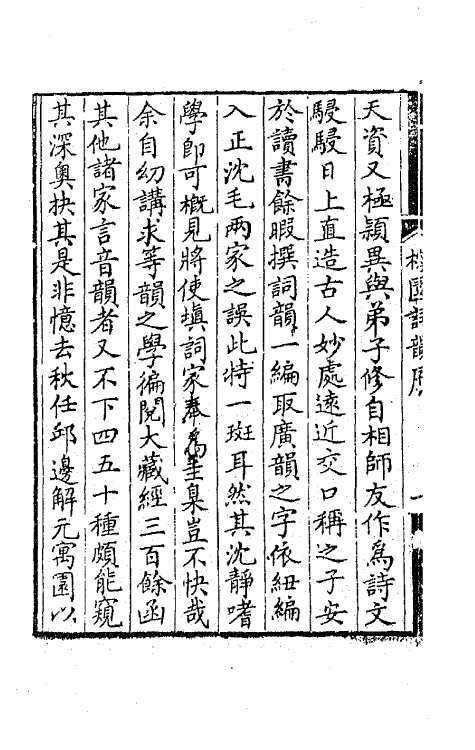 天資又極穎異與弟子修自相師友作為詩文
駸駸日上直造古人妙處遠近交口稱之子安
於讀書餘暇撰詞韻一編取廣韻之字依紐編
入正沈毛兩家之誤此特一斑耳然其沈靜嗜
學卽可槪見將使塡詞家奉為圭臬豈不快哉
余自幼講求等韻之學徧閱大藏經三百餘函
其他諸家言音韻者又不下四五十種頗能窺
其深奥抉其是非憶去秋任邱邊解元寓園以
園詞韻序
一